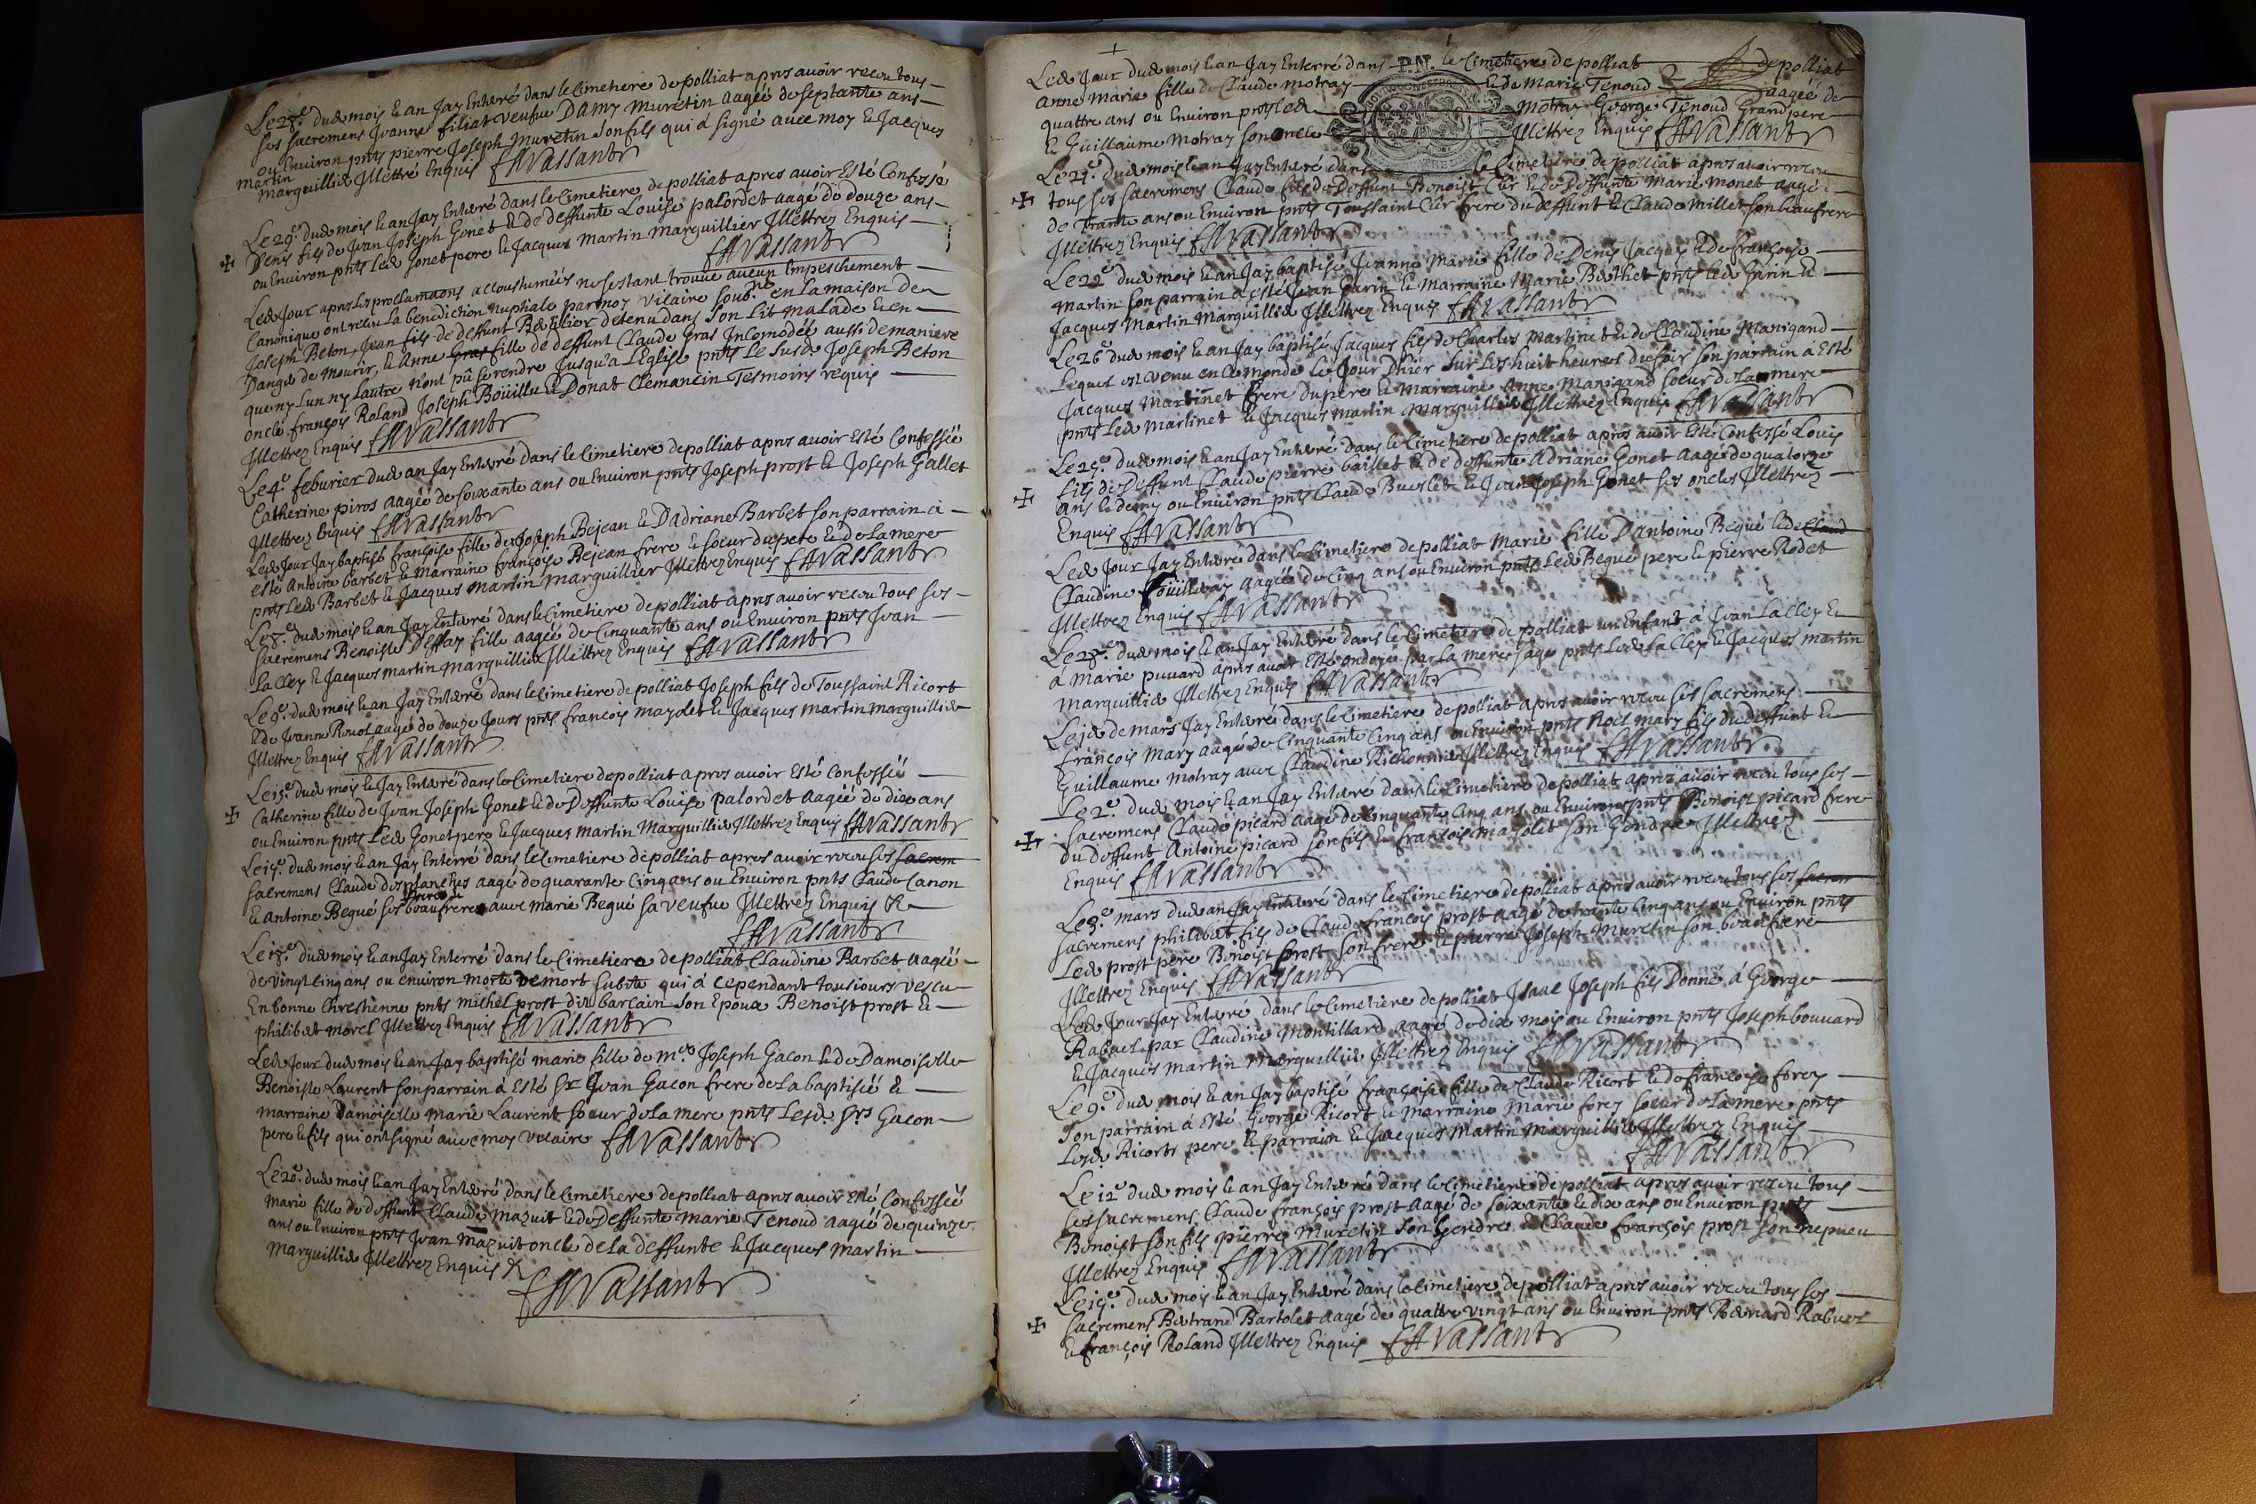 Le 28e dud mois & an Jay Enterré dans le Cimetiere de polliat apres auoir receu tous
ses sacremens Jeanne filliat veufue Damy muretin aagée de septante ans
ou Enuiron pnts pierre Joseph Muretin son fils qui à signé auec moy & Jacques
martin
marguillier Illettré Enquis fAVassant
Le 29e dud mois & an Jay Enterré dans le Cimetiere de polliat apres auoir Esté Confessé
Denis fils de Jean Joseph Gonet & de deffunte Louise palordet aagé de douze ans
ou Enuiron pnts Led Gonet pere & Jacques Martin Marguillier Illettrez Enquis
fAVassant
Led Jour apres les proclamaons accoustumées ne sestant trouué aucun Empeschement
Canonique ont receu La benediction nuptiale par moy vicaire soubné en la maison de
Joseph Beton, Jean fils de deffunt detenu dans son Lit malade & en
Danger de mourir, & Anne Gras fille de deffunt Claude Gras Incomodée aussi de maniere
que ny Lun ny Lautre n'ont pû se rendre Jusqu'a LEglise pnts Le susd Joseph Beton
oncle françois Roland Joseph Boüillu & Donat Clemancin Tesmoins requis
Illettrez Enquis fAVassant
Le 4e feburier dud an Jay Enterré dans le Cimetiere de polliat apres auoir Esté Confessée
Catherine piros aagée de soixante ans ou Enuiron pnts Joseph prost & Joseph Gallet
Illettrez Enquis fAVassant
Led Jour Jay baptisé françoise fille de Joseph Bejean & Dadriane Barbet son parrain à
esté Antoine barbet & marraine françoise Bejean frere & soeur du pere & de La mere
pnts Led Barbet & Jacques Martin Marguillier Illettrez Enquis fAVassant
Le 8e dud mois & an Jay Enterré dans le Cimetiere de polliat apres auoir receu tous ses
sacremens Benoiste Deffay fille aagée de Cinquante ans ou Enuiron pnts Jean
La Cley & Jacques martin marguillier Illettrez Enquis fAVassant
Le 9e dud mois & an Jay Enterré dans le Cimetiere de polliat Joseph fils de Toussaint Ricort
& de Jeanne Reuol aagé de douze Jours pnts françois mazolet & Jacques martin marguillier
Illettrez Enquis fAVassant
Le 15e dud mois & Jay Enterré dans le Cimetiere de polliat apres auoir Esté Confessée
Catherine fille de Jean Joseph Gonet & de Deffunte Louise palordet aagée de dix ans
ou Enuiron pnts Led Gonet pere & Jacques martin Marguillier Illettrez Enquis fAVassant
Le 15e dud mois & an Jay Enterré dans le Cimetiere de polliat apres auoir receu ses sacrem
sacremens Claude desplanches aagé de quarante Cinq ans ou Enuiron pnts Claude Canon
& Antoine Begué ses beaufreres auec marie Begué sa veufue Illettrez Enquis &
fAVassant
Le 18e dud mois & an Jay Enterré dans le Cimetiere de polliat Claudine Barbet aagée
de vingt Cinq ans ou enuiron morte de mort subite qui à cependant tousiours vescu
En bonne Chrestienne pnts michel prost dit barlain son Epoux Benoist prost &
philibert morel Illettrez Enquis fAVassant
Led Jour dud mois & an Jay baptisé marie fille de me Joseph Gacon & de Damoiselle
Benoiste Laurent son parrain à Esté Sr Jean Gacon frere de La baptisée &
marraine Damoiselle marie Laurent soeur de la mere pnts Lesd Srs Gacon
pere & fils qui ont signé auec moy vicaire fAVassant
Le 20e dud mois & an Jay Enterré dans le Cimetiere de polliat apres auoir Esté Confessée
marie fille de deffunt Claude mazuit & de Deffunte marie Tenoud aagée de quinze
ans ou Enuiron pnts Jean mazuit oncle de la deffunte & Jacques martin
marguillier Illettrez Enquis &
fAVassant
Led Jour dud mois & an Jay Enterré dans P.N. le Cimetiere de polliat de polliat
Anne Marie fille de Claude motray & de Marie Tenoud aagée de
quattre ans ou Enuiron pnts Led Motray George Tenoud Grand pere
& Guillaume Motray son oncle Illettrez Enquis fAVassant
Le 21e dud mois & an Jay Enterré dans le Cimetiere de polliat apres auoir receu
tous ses sacremens Claude fils de Deffunt Benoist Cler & de Deffunte Marie Monet aagé
de Trante ans ou Enuiron pnts Toussaint Cler frere du deffunt & Claude millet son beaufrere
Illettrez Enquis fAVassant
Le 22e dud mois & an Jay baptisé Jeanne Marie fille de Denis Jacques & de françoise
Martin son parrain à Esté Jean Garin & Marraine Marie Berthet pnts led Garin &
Jacques Martin Marguillier Illettrez Enquis fAVassant
Le 26e dud mois & an Jay baptisé Jacques fils de Charles Martinet & de Claudine Manigand
Lequel est venu en Ce monde le Jour Dhier sur les huit heures du soir son parrain à Esté
Jacques Martinet frere du pere & Marraine Anne Manigand soeur de La mere
pnts Led Martinet & Jacques martin marguillier Illettrez Enquis fAVassant
Le 25e dud mois & an Jay Enterré dans le Cimetiere de polliat apres auoir Esté Confessé Louis
fils de Deffunt Claude pierre baillet & de deffunte Adriane Gonet aagé de quatorze
ans & demy ou Enuiron pnts Claude & Jean Joseph Gonet ses oncles Illettrez
Enquis fAVassant
Led Jour Jay Enterré dans le Cimetiere de polliat Marie fille Dantoine Begué & de Claud
Claudine aagée de Cinq ans ou Enuiron pnts Led Begué pere & pierre Rodet
Illettrez Enquis fAVassant
Le 28e dud mois & an Jay Enterré dans le Cimetiere de polliat un Enfant à Jean La Cley &
à Marie puuard apres auoir Esté ondoyé par La mere sage pnts Led La Cley & Jacques martin
marguillier Illettrez Enquis fAVassant
Le 1er de mars Jay Enterré dans le Cimetiere de polliat apres auoir receu ses sacremens
françois Mary aagé de Cinquante Cinq ans ou Enuiron pnts Noel mary fils du deffunt &
Guillaume Motray auec Claudine Richonne Illettrez Enquis fAVassant
Le 2e dud mois & an Jay Enterré dans le Cimetiere de polliat apres auoir receu tous ses
sacremens Claude picard aagé de Cinquante Cinq ans ou Enuiron pnts Benoist picard frere
du deffunt Antoine picard son fils & françois mazolet son Gendre Illettrez
Enquis fAVassant
Le 8e mars dud an Jay Enterré dans le Cimetiere de polliat apres auoir receu tous ses sacrem
sacremens philibert fils de Claude françois prost aagé de trante Cinq ans ou Enuiron pnts
Led prost pere Benoist prost son frere & pierre Joseph Muretin son beaufrere
Illettrez Enquis fAVassant
Led Jour Jay Enterré dans le Cimetiere de polliat Isaue Joseph fils Donné à George
Rabuel par Claudine Montillard aagé de dix mois ou Enuiron pnts Joseph bouuard
& Jacques Martin Marguillier Illettrez Enquis fAVassant
Le 9e dud mois & an Jay baptisé françoise fille de Claude Ricort & de françoise forey
son parrain à Esté George Ricort & Marraine Marie forey soeur de La mere pnts
Lesd Ricorts pere & parrain & Jacques Martin Marguillier Illettrez Enquis
fAVassant
Le 12e dud mois & an Jay Enterré dans le Cimetiere de polliat apres auoir receu tous
ses sacremens Claude françois prost aagé de soixante & dix ans ou Enuiron pnts
Benoist son fils pierre Muretin son Gendre & Claude françois prost son nepueu
Illettrez Enquis fAVassant
Le 15e dud mois & an Jay Enterré dans le Cimetiere de polliat apres auoir receu tous ses
sacremens Bertrand Bartolet aagé de quattre vingt ans ou Enuiron pnts Bernard Rabuel
& françois Roland Illettrez Enquis fAVassant